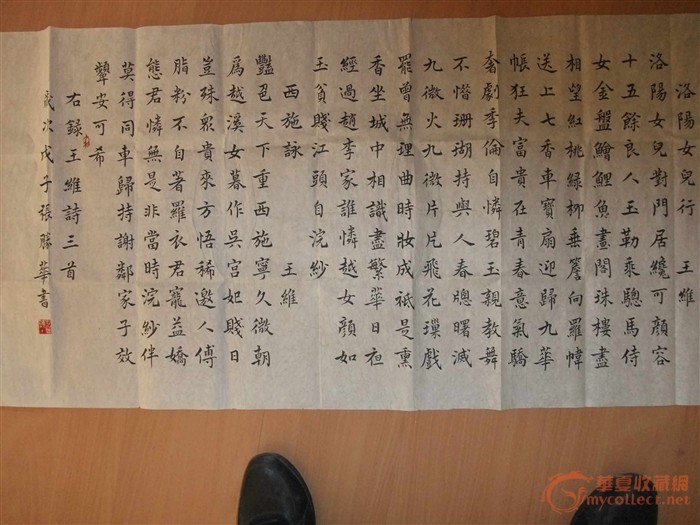 洛陽女兒行　王維
洛陽女兒對門居纔可顏容
十五餘良人玉勒乘驄馬侍
女金盤鱠鯉魚畫閣珠樓盡
相望紅桃綠柳垂簷向羅幃
送上七香車寶扇迎歸九華
帳狂夫富貴在青春意氣驕
奢劇季倫自憐碧玉親教舞
不惜珊瑚持與人春牕曙滅
九微火九微片片飛花璅戲
罷曾無理曲時妝成祇是熏
香坐城中相識盡繁華日夜
經過趙李家誰憐越女顏如
玉貧賤江頭自浣紗
西施詠　王維
豔色天下重西施寧久微朝
爲越溪女暮作吳宮妃賤日
豈殊衆貴來方悟稀邀人傅
脂粉不自著羅衣君寵益嬌
態君憐無是非當時浣紗伴
莫得同車歸持謝鄰家子效
顰安可希
右錄王維詩三首
歲次戊子張勝華書
華夏收藏網
mycollect.net